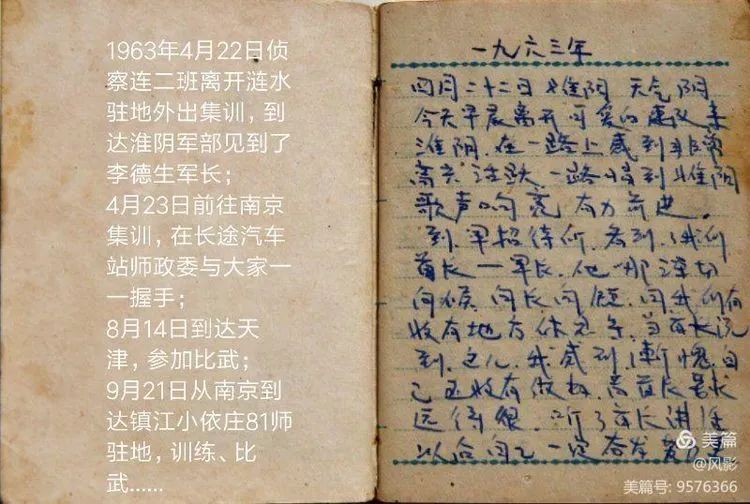 1963年4月22日侦
察连二班离开涟水
驻地外出集训，到
达淮阴军部见到了
李德生军长；
4月23日前往南京
集训，在长途汽车
站师政委与大家一
一握手；
8月14日到达天
津，参加比武；
9月21日从南京到
达镇江小依庄81师
驻地，训练、比
武......
一九六三年
四月二十二日 淮阴 天气 阴
今天早晨离开可爱的连队来
淮阴，在一路上感到非常
高兴 活跃，一路唱到淮阴
歌声响亮 有力前进。
到军招待所，看到我们
首长一军长，他那深切
问候 问长问短，问我们有
没有地方休息等，当首长说
到，这儿，我感到惭愧，自
己还没有做好，离首长要求
还得很，听了首长讲话
以后 一定奋发
美篇
@风影
美篇号: 9576366